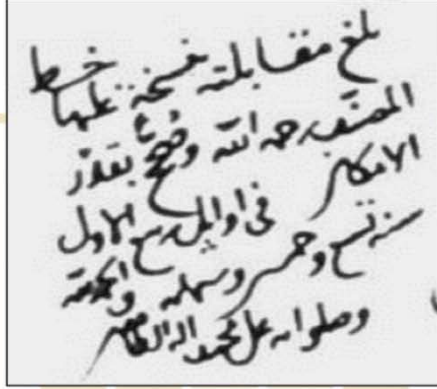 بلغ مقابلته بنسخة عليها خط
المصنف رحمه الله وصحح بقدر
الامكان
في اوايل ربيع الاول
سنة تسع وخمسين والحمد لله
وصلواته على محمد واله الطاهرين